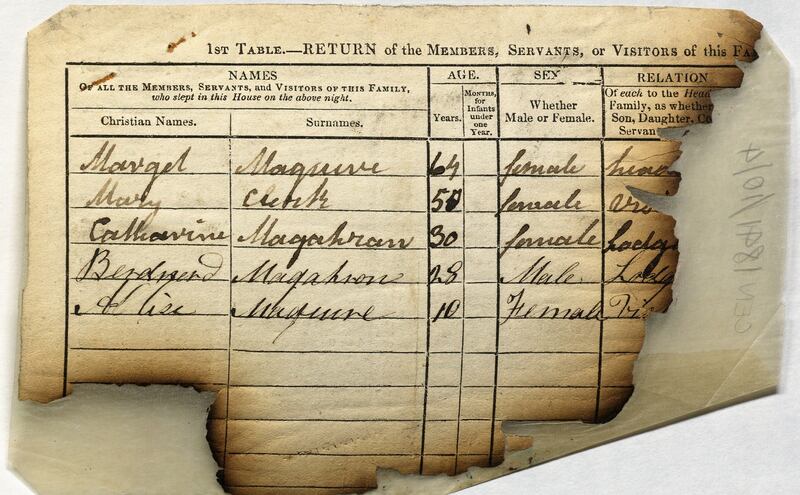 1ST TABLE.—RETURN of the MEMBERS, SERVANTS, or VISITORS of this FA
NAMES
OF ALL THE MEMBERS, SERVANTS, AND VISITORS OF THIS FAMILY,
who slept in this House on the above night.
Christian Names. Surnames.
AGE.
Years. MONTHS, for Infants under one Year.
SEX
Whether
Male or Female.
RELATION
Of each to the Head
Family, as whether
Son, Daughter, Co
Servan
Margel Maguire 64 female head
Mary Clerk 50 female Vis
Catharine Magahran 30 female Lodg
Berdnerd Magahron 28 Male Lodg
Alise Maguire 10 Female Vis
CEN 1841/10/4